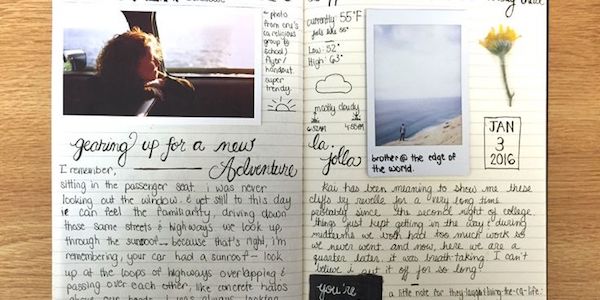 ~ photo
from cru's
(a religious
group @
school)
flyer/
handout.
super
trendy.
gearing up for a new
Adventure
I remember,
sitting in the passenger seat. i was never
looking out the window. & yet still to this day
can feel the familiarity, driving down
those same streets & highways. we look up,
through the sunroof — because that's right, i'm
remembering, your car had a sunroof — look
up at the loops of highways overlapping &
passing over each other, like concrete halos
above our heads. I was always looking
currently 55°F
feels like 55°
Low: 52°
High: 63°
mostly cloudy
6:52AM 4:55PM
la
jolla
brother @ the edge of
the world.
JAN
3
2016
Kai has been meaning to show me these
cliffs by revelle for a very long time.
probably since the second night of college.
things just kept getting in the way & during
midterms we both had too much work so
we never went. and now, here we are a
quarter later. it was breath taking. I can't
believe i put it off for so long.
you're
a little note for they-laugh-living-the-ca-life: